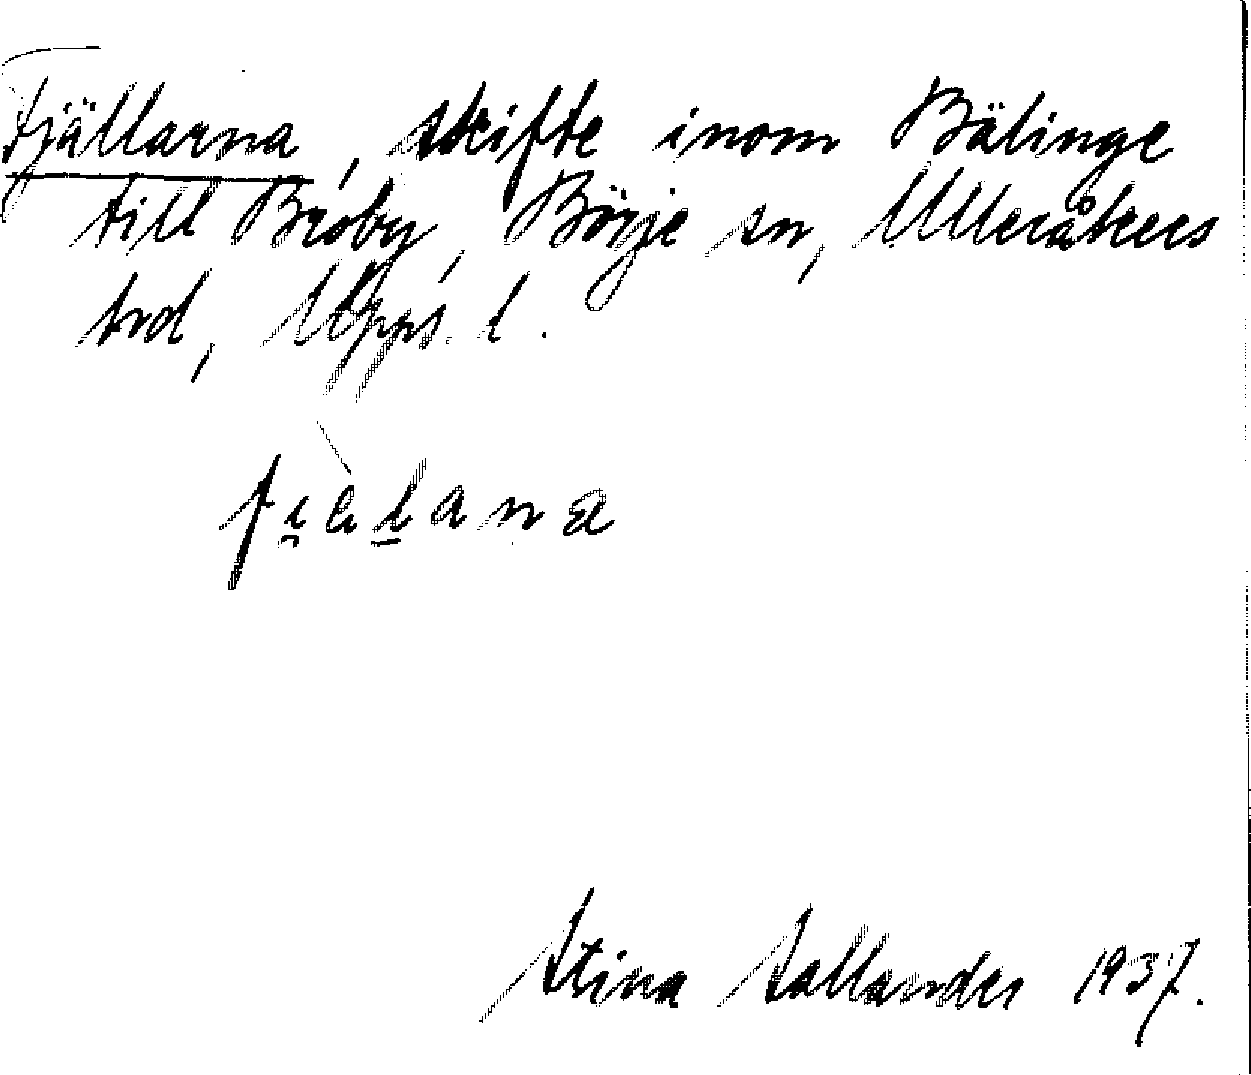 Fjällarna, skifte inom Bälinge
till Broby, Börje sn, Ulleråkers
hd, Upps. l.
Stina Sallander 1937.